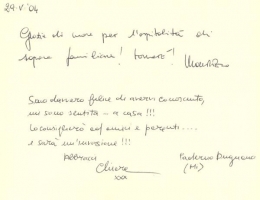 24.V.04
Grazie di cuore per l'ospitalità di
sapore familiare! tornerò!
Sono davvero felice di avervi conosciuto,
mi sono sentita a casa!!!
Lo consiglierò ad amici e parenti....
e sarà un'invasione!!!
Abbracci
Chiara
xxx
Paderno Dugnano
(MI)